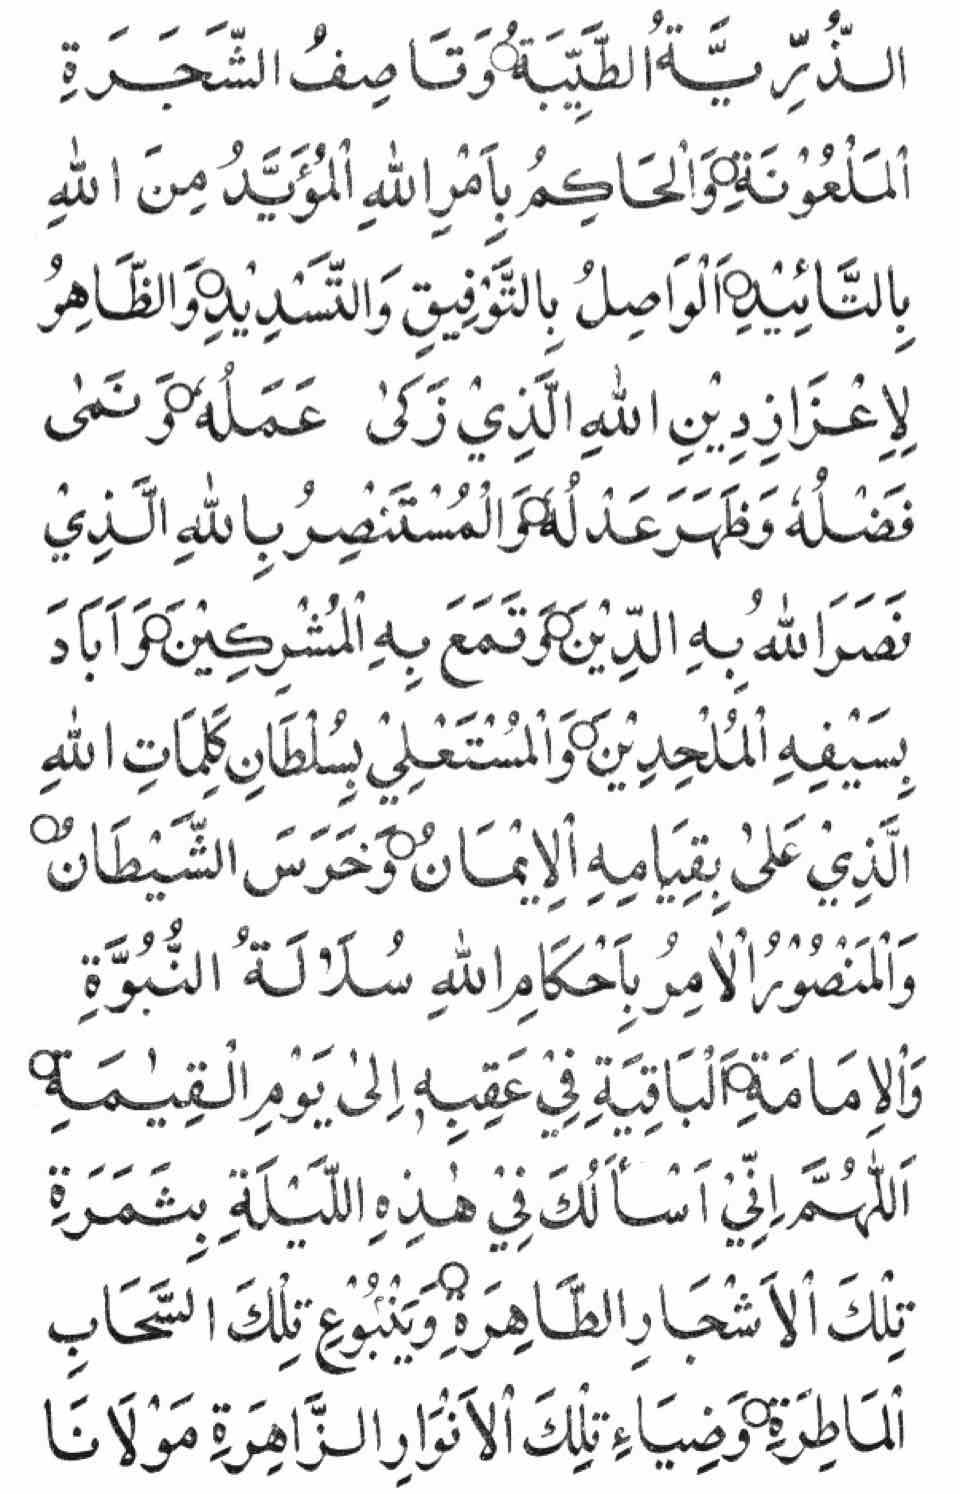 الذُّرِّيَّةُ الطَّيِّبَةُ ○ وَقَاصِفُ الشَّجَرَةِ
الْمَلْعُوْنَةِ ○ وَالْحَاكِمُ بِاَمْرِ اللهِ الْمُؤَيَّدُ مِنَ اللهِ
بِالتَّائِيْدِ ○ اَلْوَاصِلُ بِالتَّوْفِيْقِ وَالتَّسْدِيْدِ ○ وَالظَّاهِرُ
لِاِعْزَازِ دِيْنِ اللهِ الَّذِيْ زَكىٰ عَمَلُهُ ○ وَنَمىٰ
فَضْلُهُ وَظَهَرَ عَدْلُهُ ○ وَالْمُسْتَنْصِرُ بِاللهِ الَّذِيْ
نَصَرَ اللهُ بِهِ الدِّيْنَ ○ وَقَمَعَ بِهِ الْمُشْرِكِيْنَ ○ وَاَبَادَ
بِسَيْفِهِ الْمُلْحِدِيْنَ ○ وَالْمُسْتَعْلِيْ بِسُلْطَانِ كَلِمَاتِ اللهِ
الَّذِيْ عَلىٰ بِقِيَامِهِ الْاِيْمَانُ ○ وَخَرَسَ الشَّيْطَانُ ○
وَالْمَنْصُوْرُ الْاٰمِرُ بِاَحْكَامِ اللهِ سُلَالَةُ النُّبُوَّةِ
وَالْاِمَامَةِ ○ اَلْبَاقِيَةِ فِيْ عَقِبِهِ اِلىٰ يَوْمِ الْقِيٰمَةِ ○
اَللّٰهُمَّ اِنِّيْ اَسْأَلُكَ فِيْ هٰذِهِ اللَّيْلَةِ بِثَمَرَةِ
تِلْكَ الْاَشْجَارِ الطَّاهِرَةِ ○ وَيَنْبُوْعِ تِلْكَ السَّحَابِ
الْمَاطِرَةِ ○ وَضِيَاءِ تِلْكَ الْاَنْوَارِ الزَّاهِرَةِ مَوْلَانَا